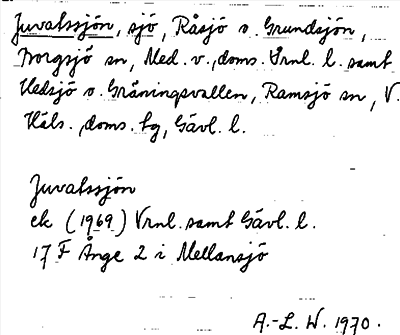 Juvatssjön, sjö, Råsjö o. Grundsjön,
Borgsjö sn, Med. v., doms. Vrnl. l. samt
Hedsjö o. Gråningsvallen, Ramsjö sn, V.
Häls. doms. tg, Gävl. l.
Juvatssjön
ek (1969) Vrnl. samt Gävl. l.
17 F Ånge 2 i Mellansjö
A.-L. W. 1970.